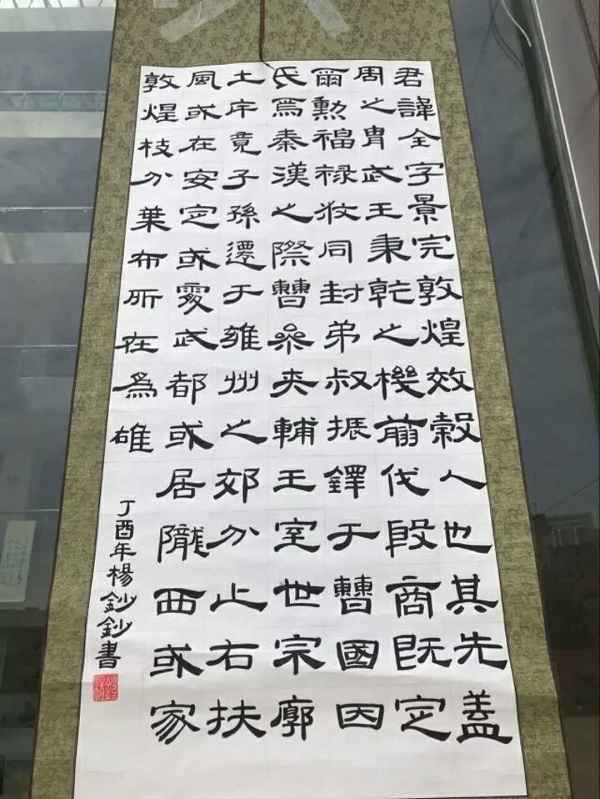 君諱全字景完敦煌效穀人也其先蓋
周之胄武王秉乾之機翦伐殷商既定
爾勳福祿攸同封弟叔振鐸于曹國因
氏焉秦漢之際曹參夾輔王室世宗廓
土斥竟子孫遷于雍州之郊分止右扶
風或在安定或處武都或居隴西或家
敦煌枝分葉布所在為雄
丁酉年楊鈔鈔書